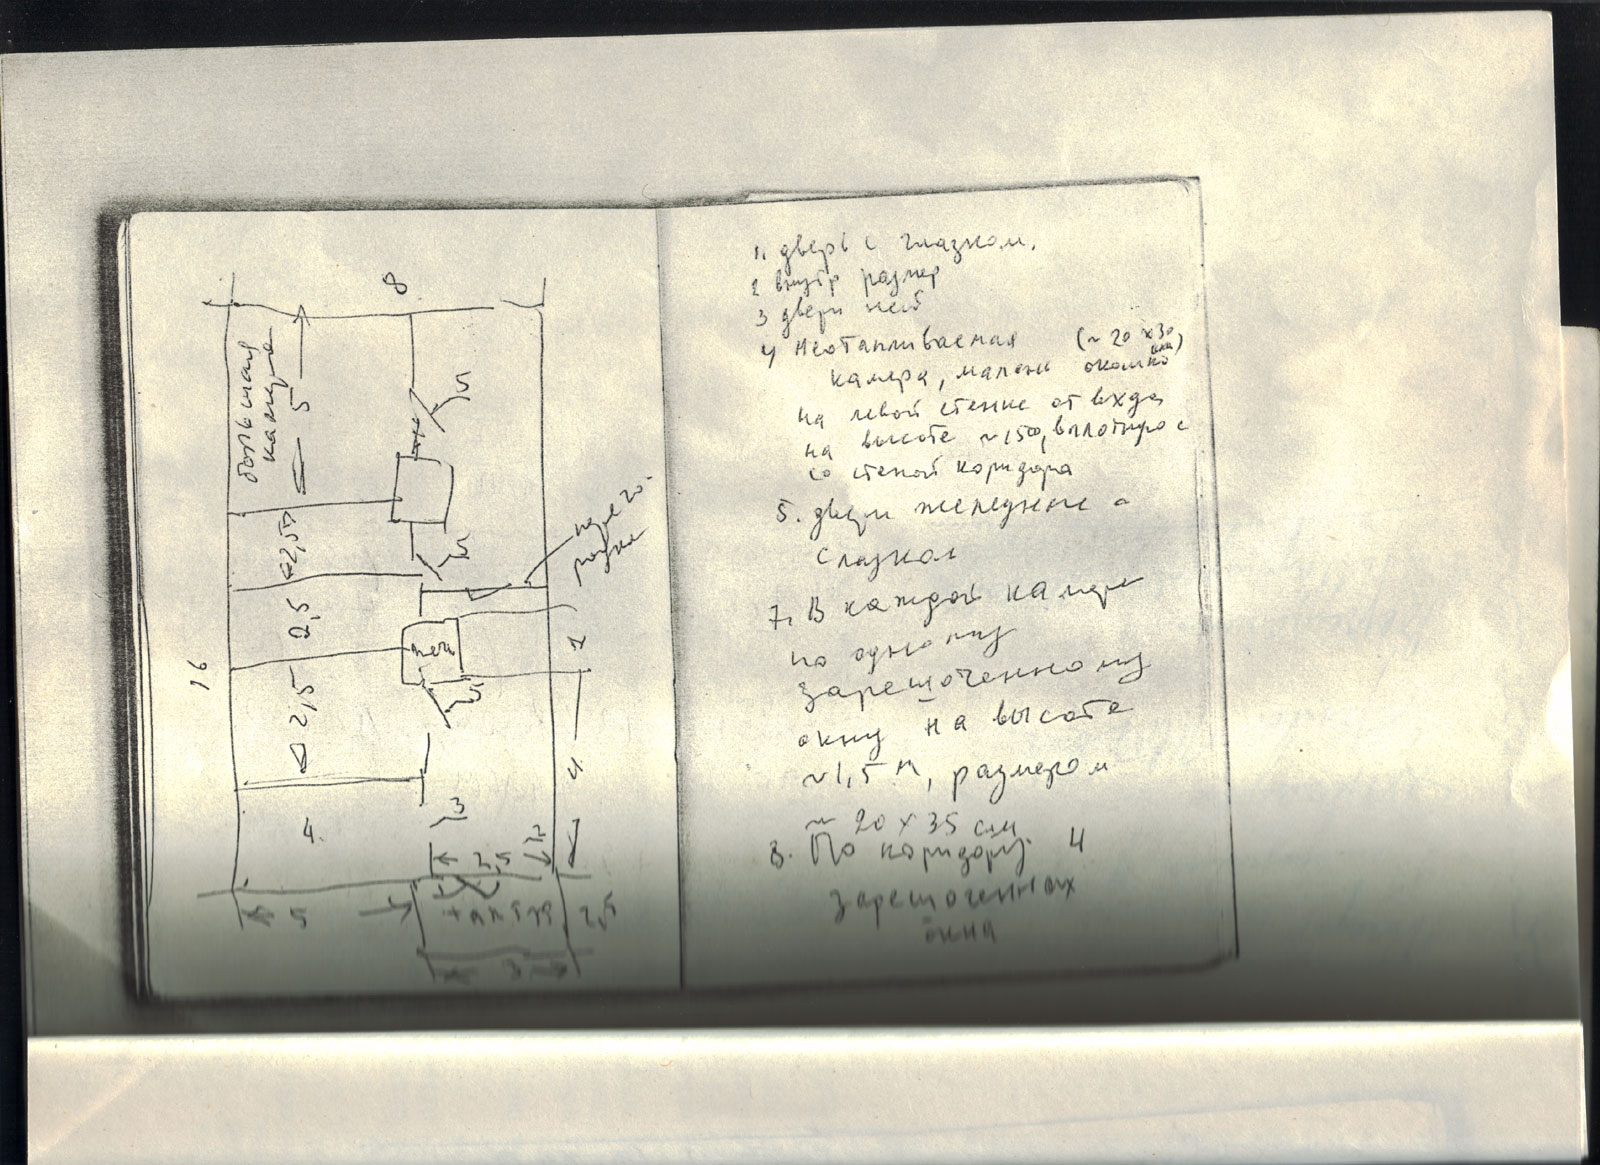 большая
камера
8
5
5
2,5
5
2,5
перего-
родка
16
2,5
печь
2
5
4
4
3
2
2,5
5
2,5
3
1. дверь с глазком.
2 внутр размер
3 двери нет
4 Неотапливаемая (~20 x 30
камера, мален окошко
на левой стенке от входа
на высоте ~1500, вплотную с
со стеной коридора
5. двери железные с
глазком
7. В каждой камере
по одному
зарешоченному
окну на высоте
~1,5 м, размером
~ 20 x 35 см
8. По коридору 4
зарешоченных
окна